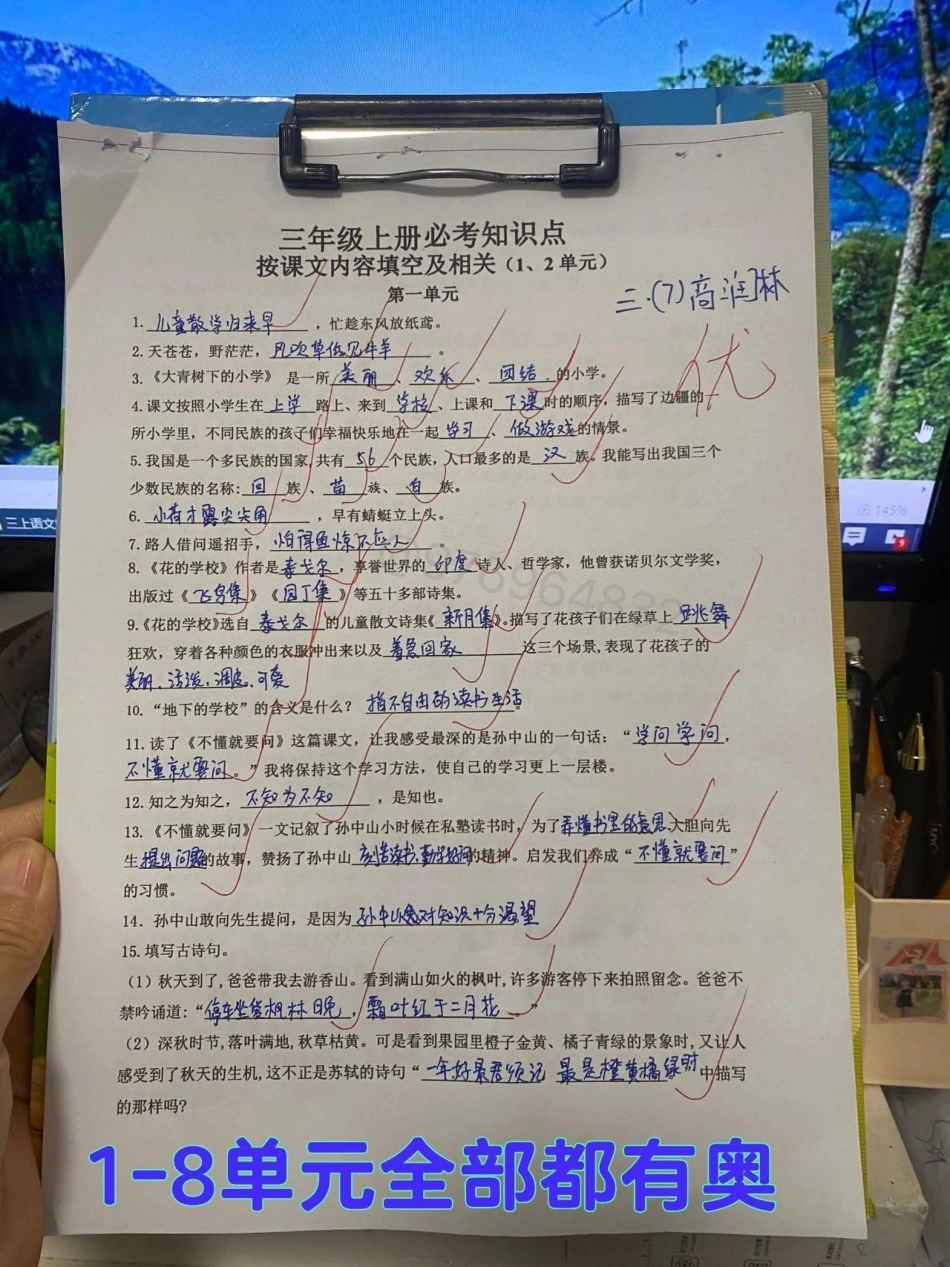 三年级上册必考知识点
按课文内容填空及相关（1、2单元）
第一单元
三.(7)高润林
优
1. 儿童散学归来早，忙趁东风放纸鸢。
2. 天苍苍，野茫茫，风吹草低见牛羊。
3.《大青树下的小学》 是一所 美丽、欢乐、团结 的小学。
4. 课文按照小学生在 上学 路上、来到 学校、上课和 下课 时的顺序，描写了边疆的
所小学里，不同民族的孩子们幸福快乐地在一起 学习、做游戏 的情景。
5. 我国是一个多民族的国家,共有 56 个民族，人口最多的是 汉 族。我能写出我国三个
少数民族的名称: 回 族 、 苗 族、 白 族。
6. 小荷才露尖尖角，早有蜻蜓立上头。
7. 路人借问遥招手，怕得鱼惊不应人。
8.《花的学校》作者是 泰戈尔，享誉世界的 印度 诗人、哲学家，他曾获诺贝尔文学奖，
出版过《飞鸟集》《园丁集》等五十多部诗集。
9.《花的学校》选自 泰戈尔 的儿童散文诗集《新月集》。描写了花孩子们在绿草上 跳舞
狂欢，穿着各种颜色的衣服冲出来以及 着急回家 这三个场景,表现了花孩子的
美丽、活泼、调皮、可爱
10.“地下的学校”的含义是什么？ 指不自由的读书生活。
11. 读了《不懂就要问》这篇课文，让我感受最深的是孙中山的一句话：“学问学问，
不懂就要问。”我将保持这个学习方法，使自己的学习更上一层楼。
12. 知之为知之，不知为不知，是知也。
13.《不懂就要问》一文记叙了孙中山小时候在私塾读书时，为了弄懂书里的意思,大胆向先
生提出问题的故事，赞扬了孙中山 勤学好问的精神。启发我们养成“不懂就要问”
的习惯。
14. 孙中山敢向先生提问，是因为 孙中山对知识十分渴望
15. 填写古诗句。
（1）秋天到了,爸爸带我去游香山。看到满山如火的枫叶,许多游客停下来拍照留念。爸爸不
禁吟诵道:“停车坐爱枫林晚，霜叶红于二月花。”
（2）深秋时节,落叶满地,秋草枯黄。可是看到果园里橙子金黄、橘子青绿的景象时,又让人
感受到了秋天的生机,这不正是苏轼的诗句“一年好景君须记 最是橙黄橘绿时 中描写
的那样吗?
三上语文
145%
1-8单元全部都有奥